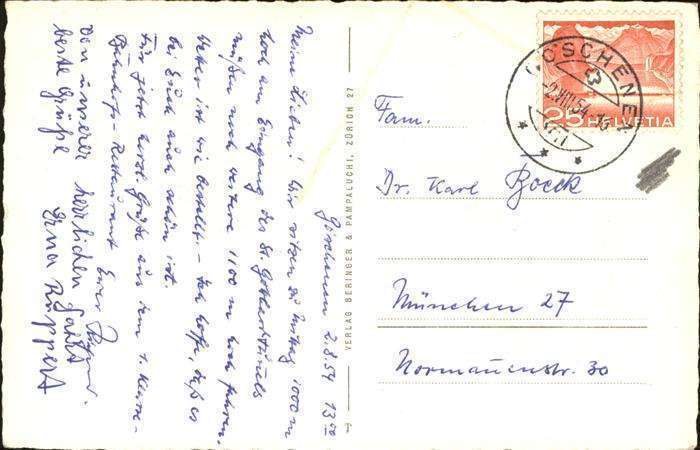 Göschenen 2.8.54 13⁰⁰
Meine Lieben! Wir sitzen zu Mittag 1000 m
hoch am Eingang des St. Gotthardtunnels
müssen noch weitere 1100 m hoch fahren.
Wetter ist wie bestellt – Ich hoffe, daß es
bei Euch auch schön ist.
Für jetzt herzl. Grüße aus dem 1. Klasse-
Bahnhofs-Restaurant Euer
Von unserer herrlichen Fahrt
beste Grüße Erna Ruppert
VERLAG BERINGER & PAMPALUCHI, ZÜRICH 27
GÖSCHENEN
2.VIII.54
25 HELVETIA
Fam.
Dr. Karl Boeck
München 27
Normannenstr. 30